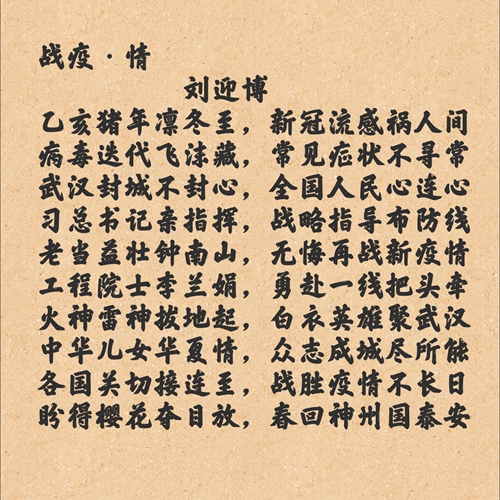 战疫·情
刘迎博
乙亥猪年凛冬至，新冠流感祸人间
病毒迭代飞沫藏，常见症状不寻常
武汉封城不封心，全国人民心连心
习总书记亲指挥，战略指导布防线
老当益壮钟南山，无悔再战新疫情
工程院士李兰娟，勇赴一线把头牵
火神雷神拔地起，白衣英雄聚武汉
中华儿女华夏情，众志成城尽所能
各国关切接连至，战胜疫情不长日
盼得樱花夺目放，春回神州国泰安